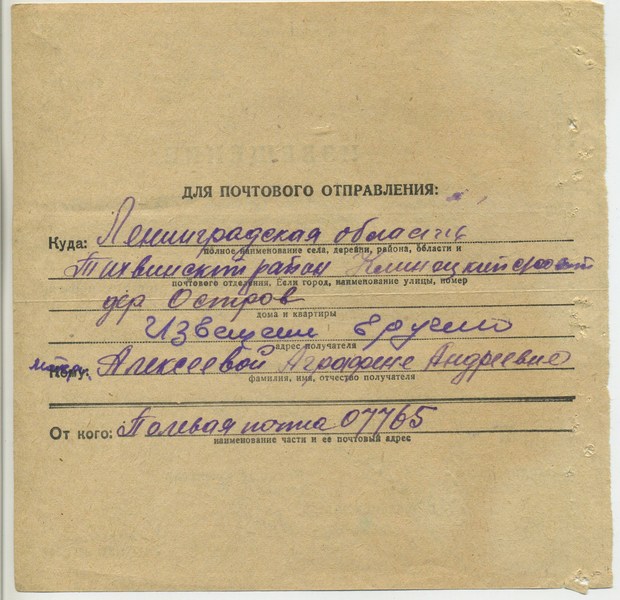 ДЛЯ ПОЧТОВОГО ОТПРАВЛЕНИЯ:
Куда: Ленинградская область
полное наименование села, деревни, района, области и
Тихвинский район
почтового отделения. Если город, наименование улицы, номер
дер Остров
дома и квартиры
Извещение вручено
адрес получателя
Кому: Алексеевой Аграфене Андреевне
фамилия, имя, отчество получателя
От кого: Полевая почта 07765
наименование части и ее почтовый адрес